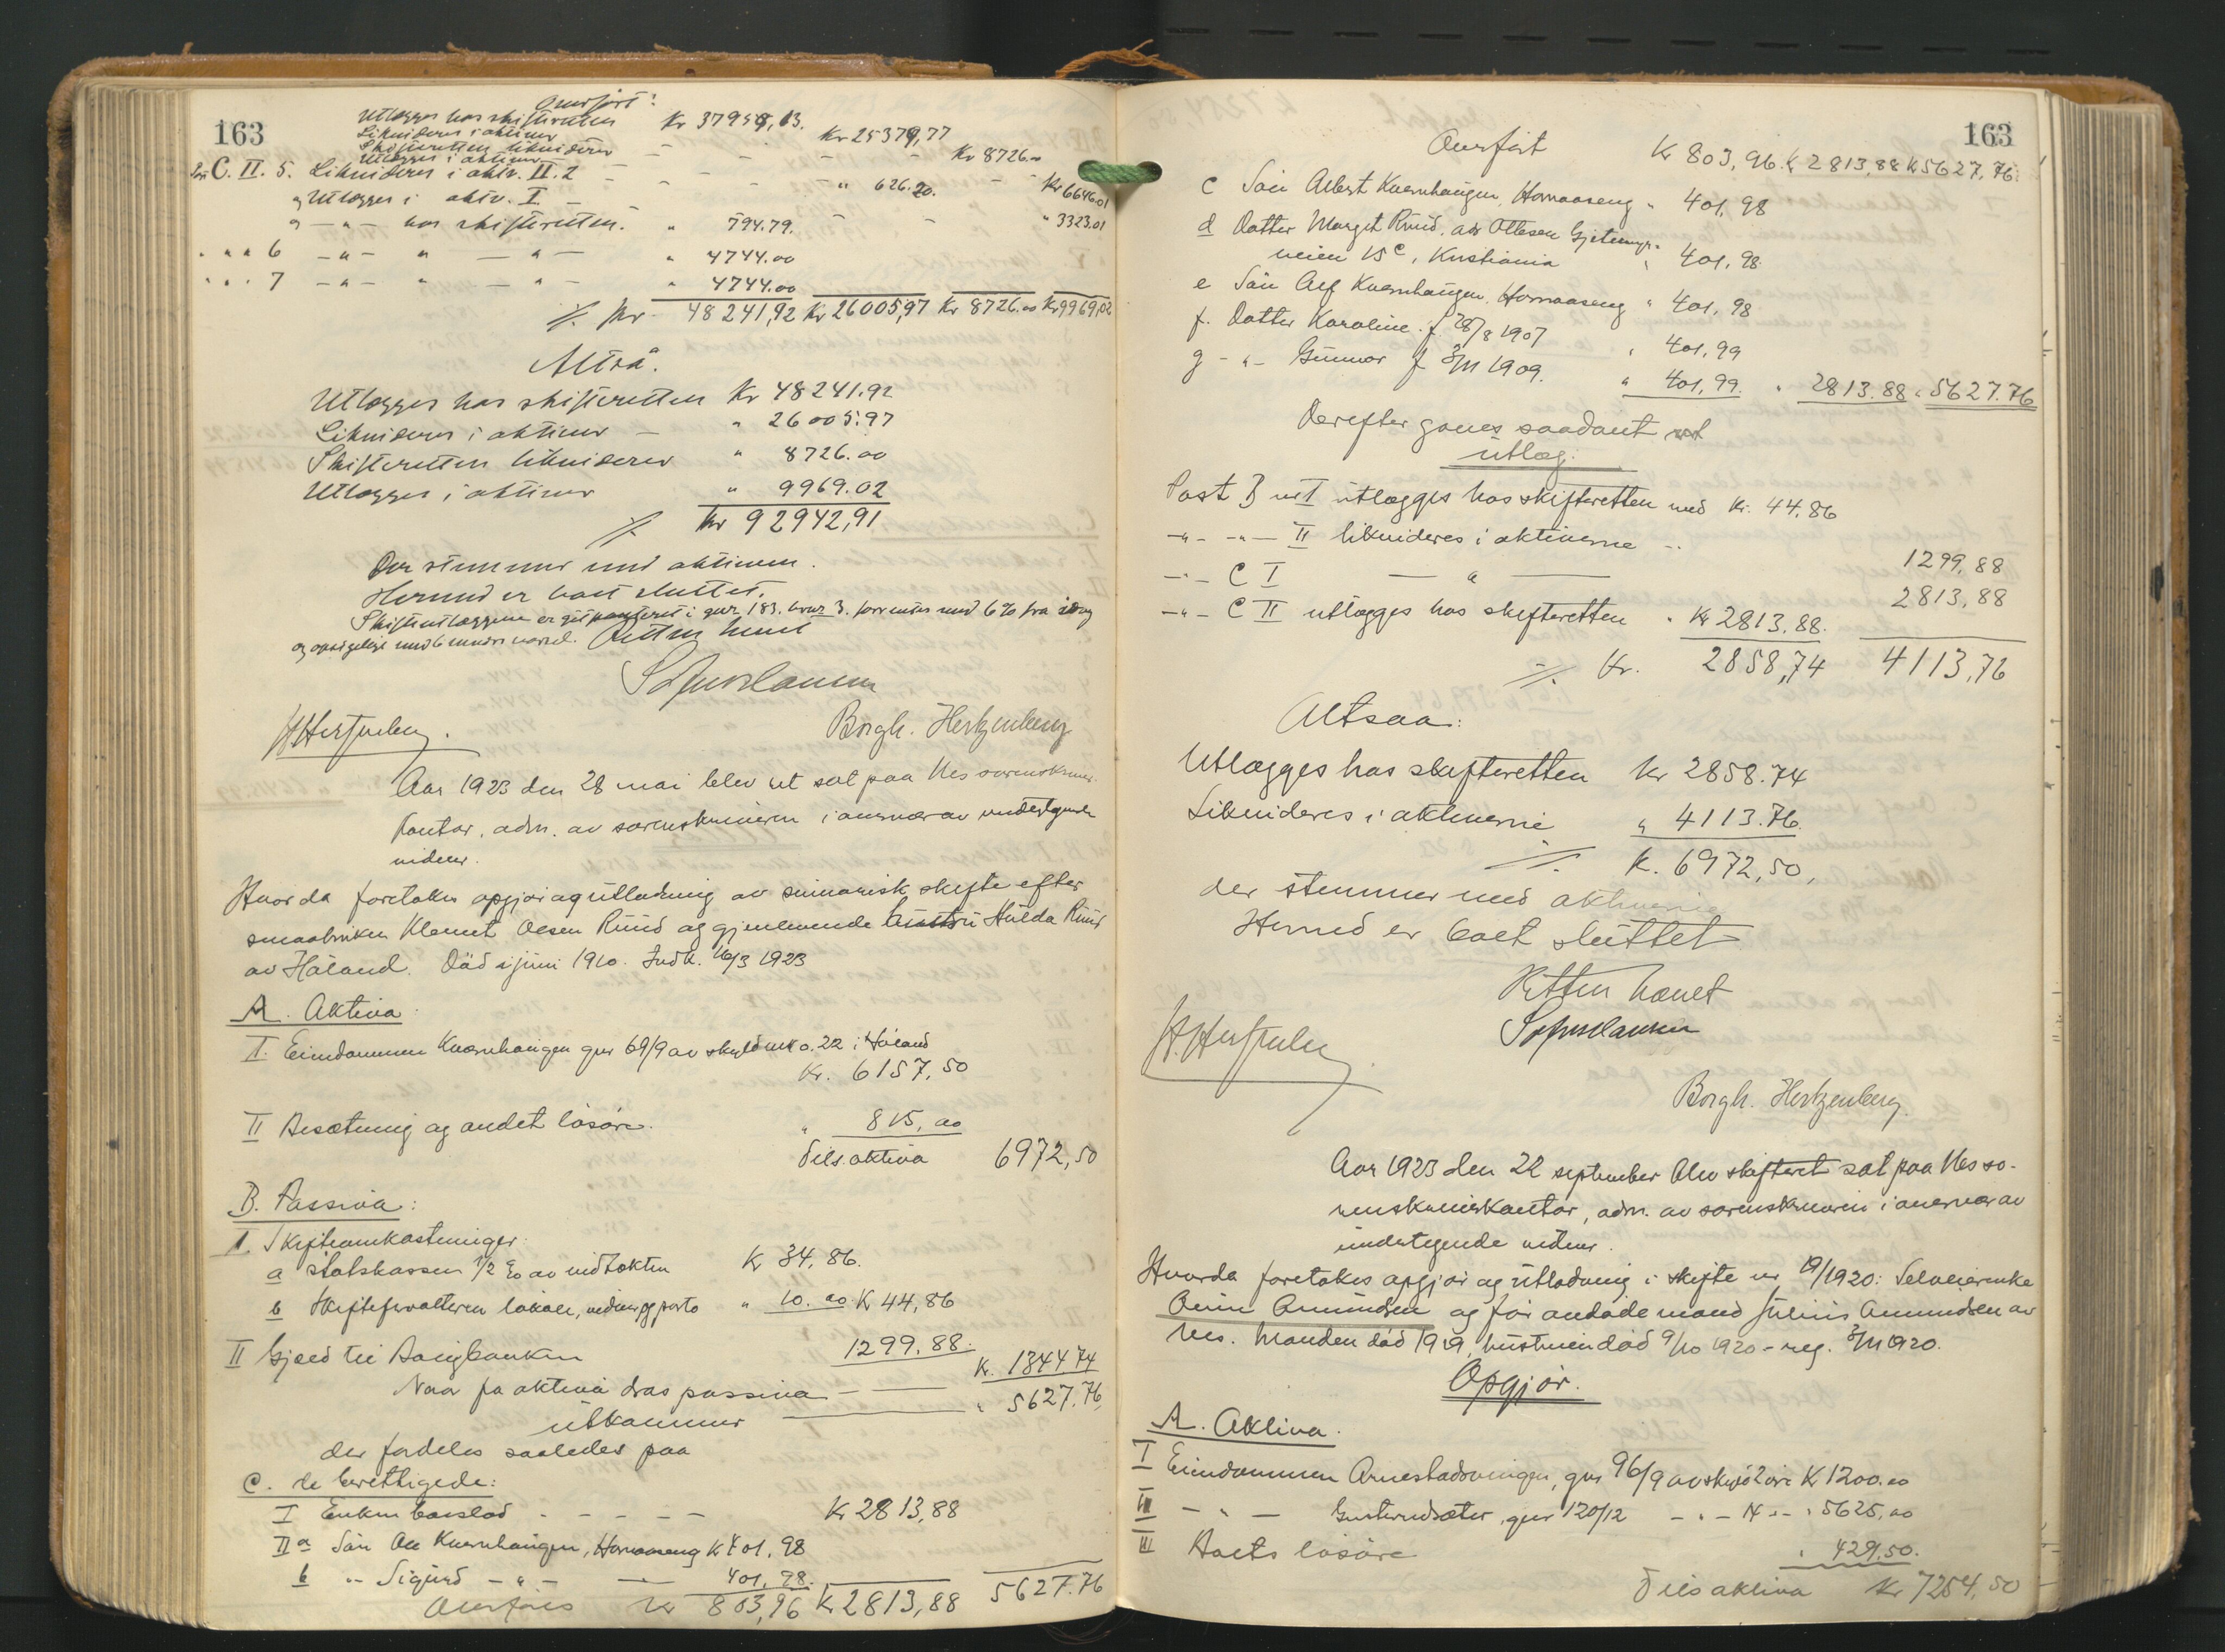 163
Overført:
Utlægges hos skifteretten Kr 37959,13.
Likvideres i aktiver Kr 25379,77
Skifteretten likviderer Kr 8726.00
Utlægges i aktiver Kr 6646.01
C. II. 5. Likvideres i aktv. II. 2 " 626.20.
og Utlægges i aktv. I " 3323.01
" - " - hos skifteretten. " 794.79.
" " " 6 - " - " - " - " 4744.00
" " " 7 - " - " - " - " 4744.00
Kr 48241,92 Kr 26005,97 Kr 8726.00 Kr 9969,02
Altså.
Utlægges hos skifteretten Kr 48241.92
Likvideres i aktiver " 26005.97
Skifteretten likviderer " 8726.00
Utlægges i aktiver " 9969.02
Kr 92942,91
Der stemmer med aktiver.
Hermed er boet sluttet.
Skifteutlæggene er i gnr 183, bnr 3. forrentes med 6% fra idag
og opsigelige med 6 mndrs varsel. Retten hævet
H Hertzenberg. Borgh. Hertzenberg
Aar 1923 den 28 mai blev ret sat paa Nes sorenskriver-
kontor, adm. av sorenskriveren i overvær av undertegnede
vidner.
Hvor da foretokes opgjør og utlodning av summarisk skifte efter
smaabruker Klemet Olsen Ruud og gjenlevende hustru Hulda Ruud
av Håland. Död i juni 1910. Indk. 16/3 1923
A. Aktiva.
I. Eiendommen Kværnhaugen gnr 69/9 av skyld mrk 0.22 i Håland
Kr. 6157,50
II Besætning og andet løsøre. " 815,00
Tils. aktiva 6972,50
B. Passiva:
I. Skifteomkostninger:
a Statskassen 1/2 % av indtækten K 34,86.
b Skifteforvalteren lokale, vidner og porto " 10.00 K 44,86
II Gjæld til Bangbanken 1299,88. K. 1344 74
Naar fra aktiva dras passiva " 5627.76
utkommer
der fordeles saaledes paa
C. de berettigede:
I Enken boslod - - - - - K 2813,88
II a Søn Ole Kværnhaugen, Hornaaseng K 401,98
b " Sigurd - " - 401,98.
Overføres Kr 803,96 K 2813,88 5627.76
163
Overført Kr 803,96. K 2813,88 K 5627,76.
c Søn Albert Kværnhaugen, Hornaaseng " 401,98
d Datter Margit Ruud, adr Ottesen Gjetemyrs-
veien 15c, Kristiania " 401,98.
e Søn Alf Kværnhaugen, Hornaaseng " 401,98
f. Datter Karoline. f 28/8 1907 " 401,99
g - " - Gunvor f 3/11 1909. " 401,99. " 2813.88 " 5627.76
Derefter gjøres saadant
utlæg.
Post B nr I utlægges hos skifteretten med Kr. 44,86
- " - - " - II likvideres i aktiverne - " 1299,88
- " - C I - " - 2813,88
- " - C II utlægges hos skifteretten " Kr 2813,88.
Kr. 2858,74 4113,76
Altsaa:
Utlægges hos skifteretten Kr 2858.74
Likvideres i aktiverne " 4113.76.
K. 6972,50,
der stemmer med aktiverne
Hermed er boet sluttet
Retten hævet
H. Hertzenberg
Borgh. Hertzenberg.
Aar 1923 den 22 september blev skifteret sat paa Nes so-
renskriverkontor, adm. av sorenskriveren i overvær av
undertegnede vidner.
Hvorda foretokes opgjør og utlodning i skifte nr 19/1920: Selveierenke
Oline Amundsen og før avdøde mand Julius Amundsen av
Nes. Manden död 1919, hustruen död 9/10 1920 - reg. 3/11 1920.
Opgjør.
A. Aktiva.
I Eiendommen Arnestadsvingen, gnr 96/9 av skyld 2 øre K 1200.00
II - " - gnr 120/12 - " - 14 " - " 5625,00
III Boets løsøre " 429,50.
Tils aktiva Kr 7254,50